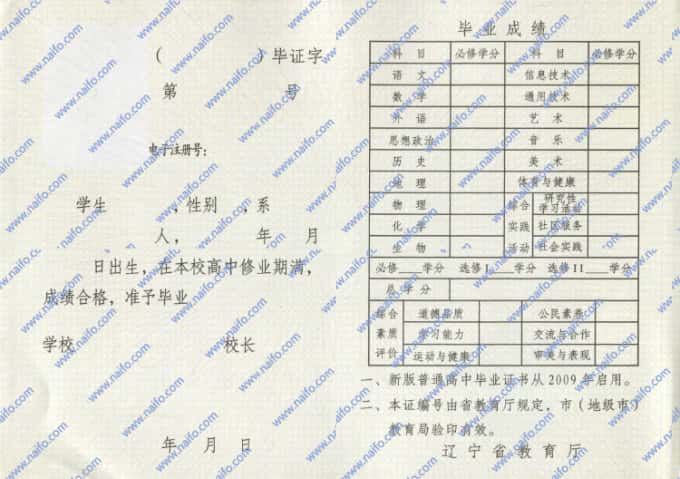 ( ) 毕证字
第 号
电子注册号:
学生 ,性别 ,系
人, 年 月
日出生,在本校高中修业期满,
成绩合格,准予毕业
学校 校长
年 月 日
毕业成绩
科 目 必修学分 科 目 必修学分
语 文 信息技术
数 学 通用技术
外 语 艺 术
思想政治 音 乐
历 史 美 术
地 理 体育与健康
物 理 综合 研究性学习活动
化 学 实践 社区服务
生 物 活动 社会实践
必修____学分 选修I____学分 选修II____学分
总 学 分
综合 道德品质 公民素养
素质 学习能力 交流与合作
评价 运动与健康 审美与表现
一、新版普通高中毕业证书从2009年启用。
二、本证编号由省教育厅规定,市(地级市)
教育局验印有效。
辽宁省教育厅
www.naifo.com